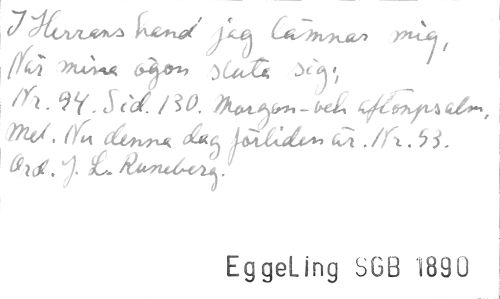 I Herrans hand jag lämnar mig,
När mina ögon sluta sig;
Nr. 94. Sid. 130. Morgon- och aftonpsalm,
Mel. Nu denna dag förliden är. Nr. 53.
Ord. J. L. Runeberg.
EggeLing SGB 1890